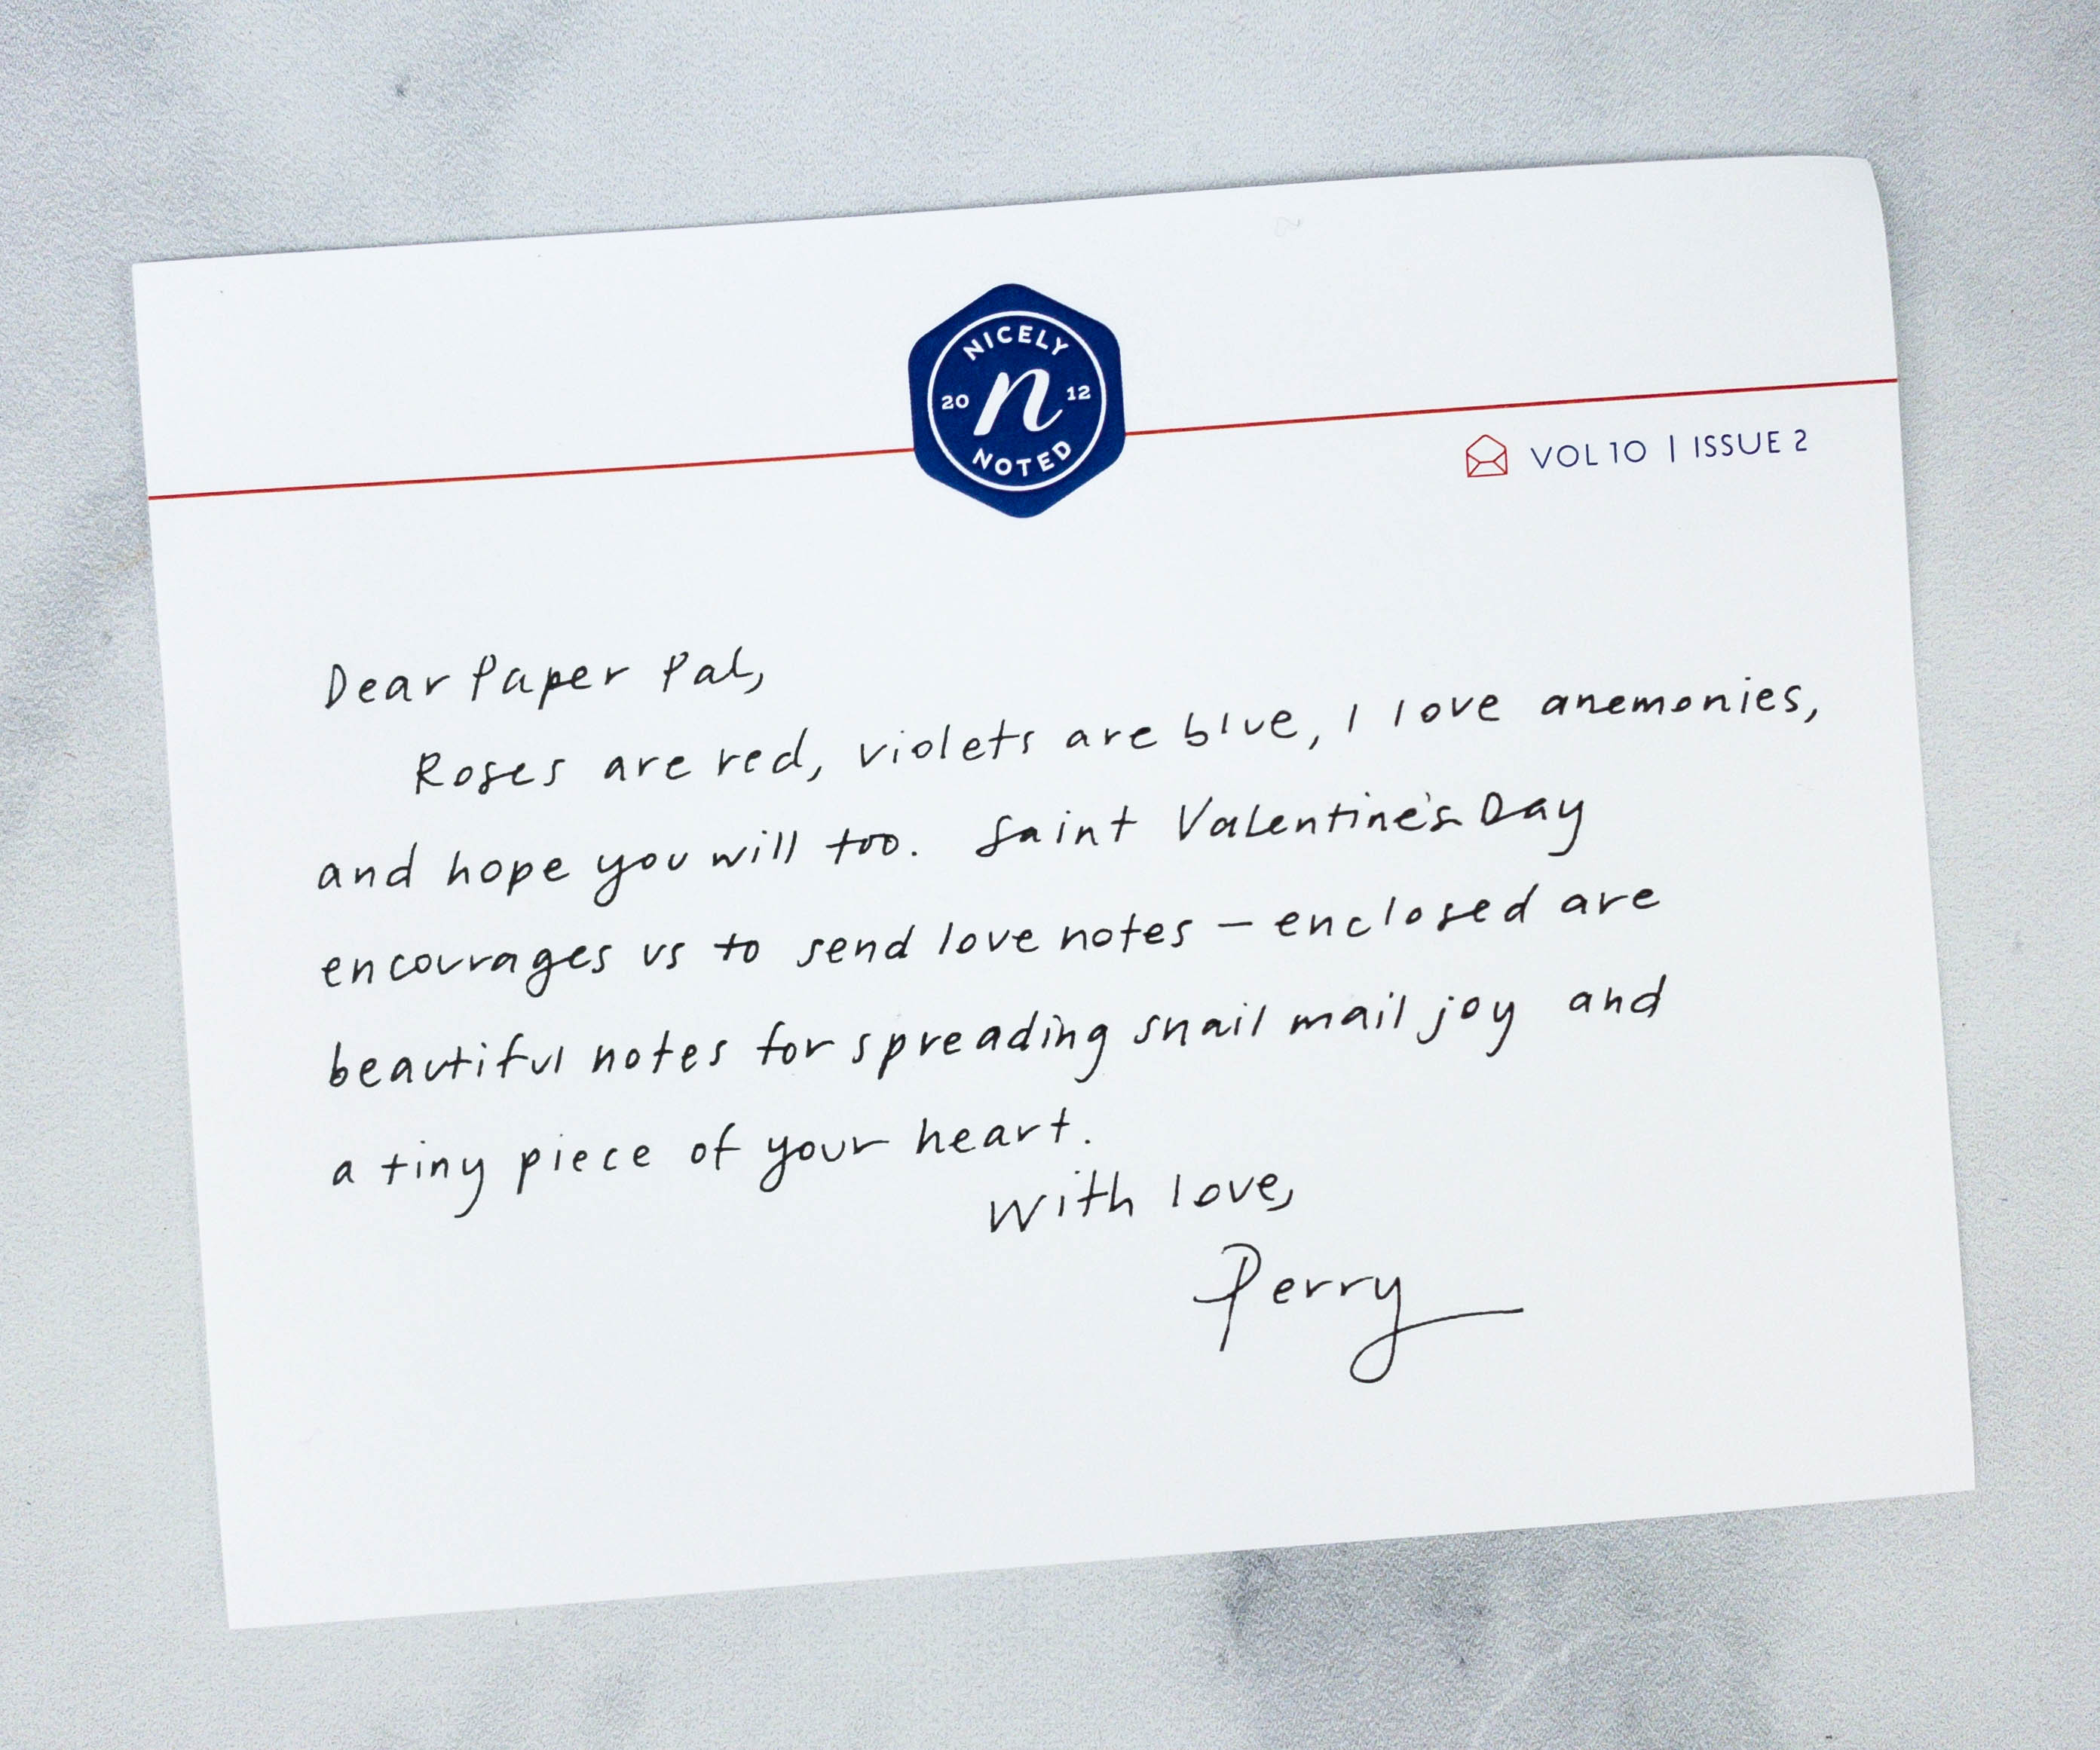 NICELY
20 n 12
NOTED
VOL 10 | ISSUE 2
Dear Paper Pal,
Roses are red, violets are blue, I love anemonies,
and hope you will too. Saint Valentine's Day
encourages us to send love notes — enclosed are
beautiful notes for spreading snail mail joy and
a tiny piece of your heart.
With love,
Perry